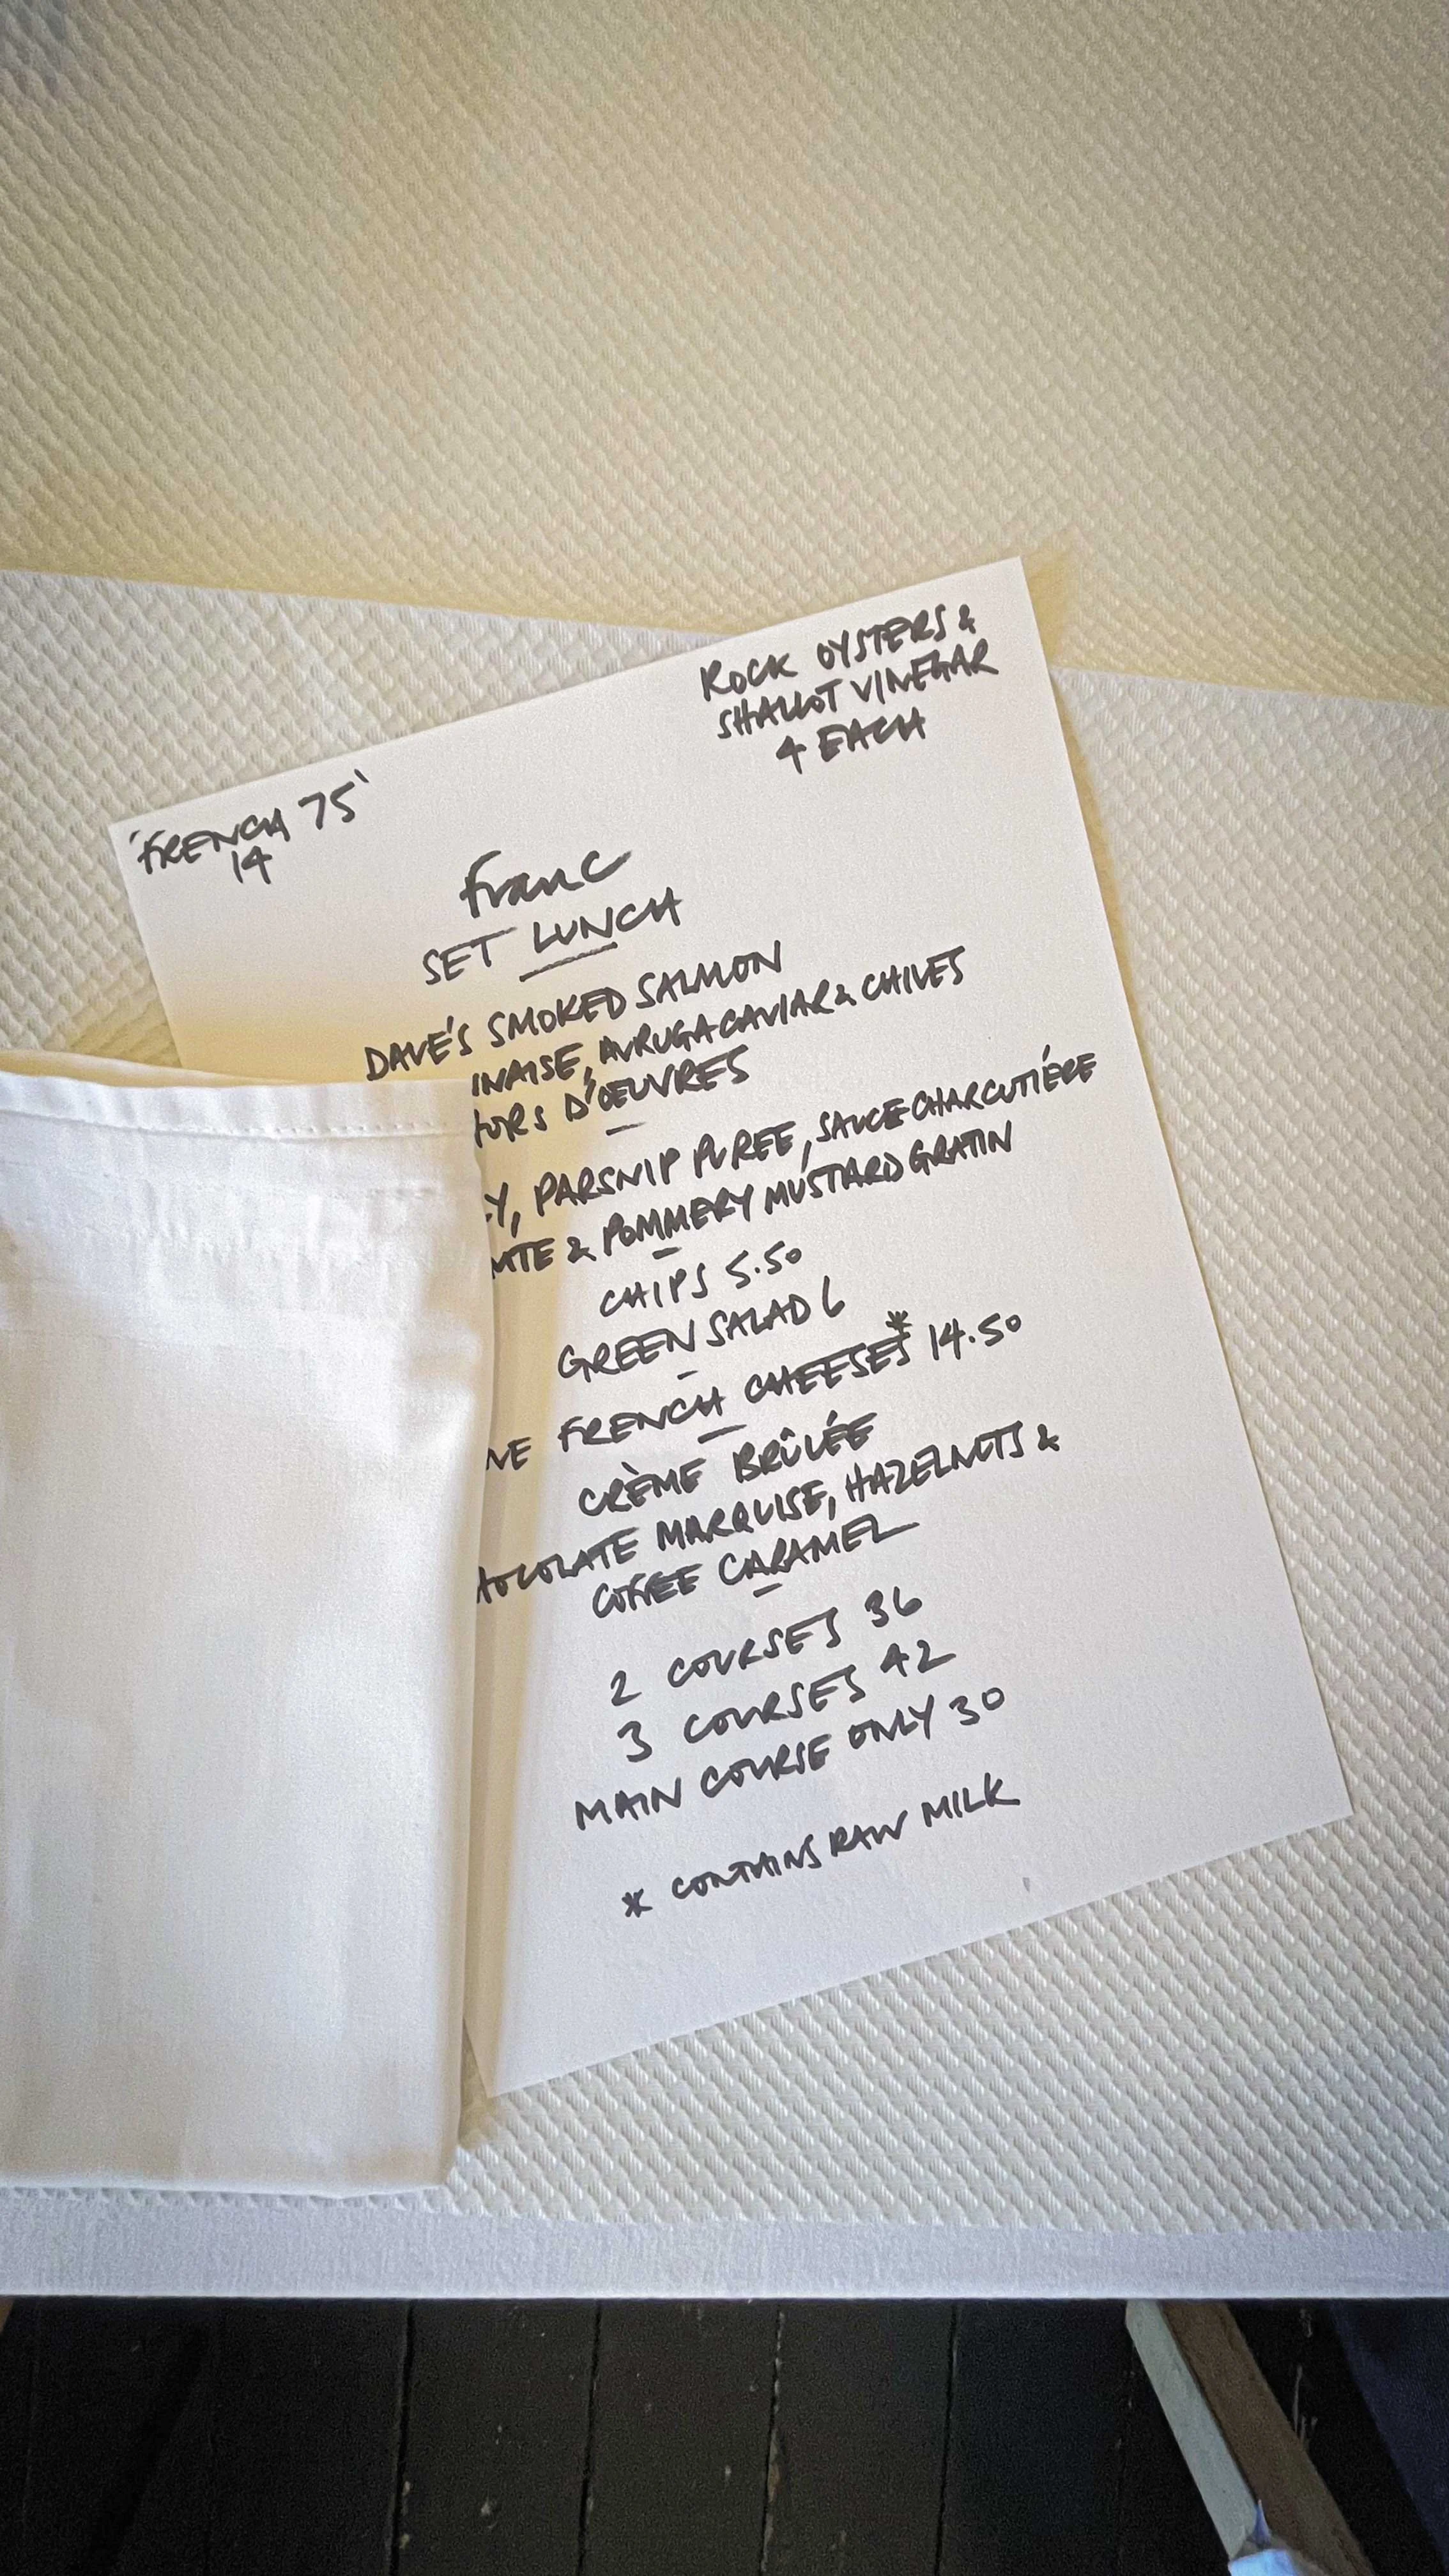 ROCK OYSTERS &
SHALLOT VINEGAR
4 EACH
'FRENCH 75'
14
franc
SET LUNCH
DAVE'S SMOKED SALMON
INAISE, AVRUGA CAVIAR & CHIVES
HORS D'OEUVRES
Y, PARSNIP PUREE, SAUCE CHARCUTIÉRE
MTE & POMMERY MUSTARD GRATIN
CHIPS 5.50
GREEN SALAD 6
NE FRENCH CHEESES* 14.50
CRÈME BRÛLÉE
HOCOLATE MARQUISE, HAZELNUTS &
COFFEE CARAMEL
2 COURSES 36
3 COURSES 42
MAIN COURSE ONLY 30
* CONTAINS RAW MILK